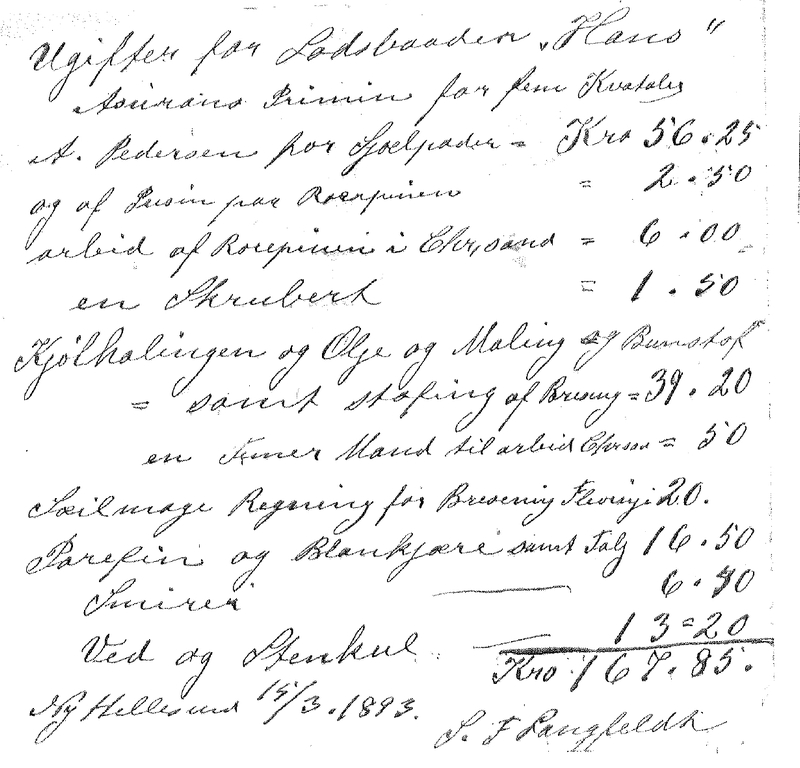 Ugifter for Lodsbaaden „Hans"
Asurans Primin for fem Kvataler
A. Pedersen for Sjoelpoder = Kro 56.25
og af Pusin paa Roerpinen = 2.50
arbid af Roerpinen i Chr,sand = 6.00
en Skrubert = 1.50
Kjølhalingen og Olje og Maling og Bunstof
= samt stafing af = 39.20
en Mand til arbid = 50
Seilmage Regning for 20.
Parefin og Blankjære samt Talg 16.50
Smireri — 6.30
Ved og Stenkul — 13=20
Kro 167.85.
Ny Hellesund 15/3.1893.
S. F Langfeldt